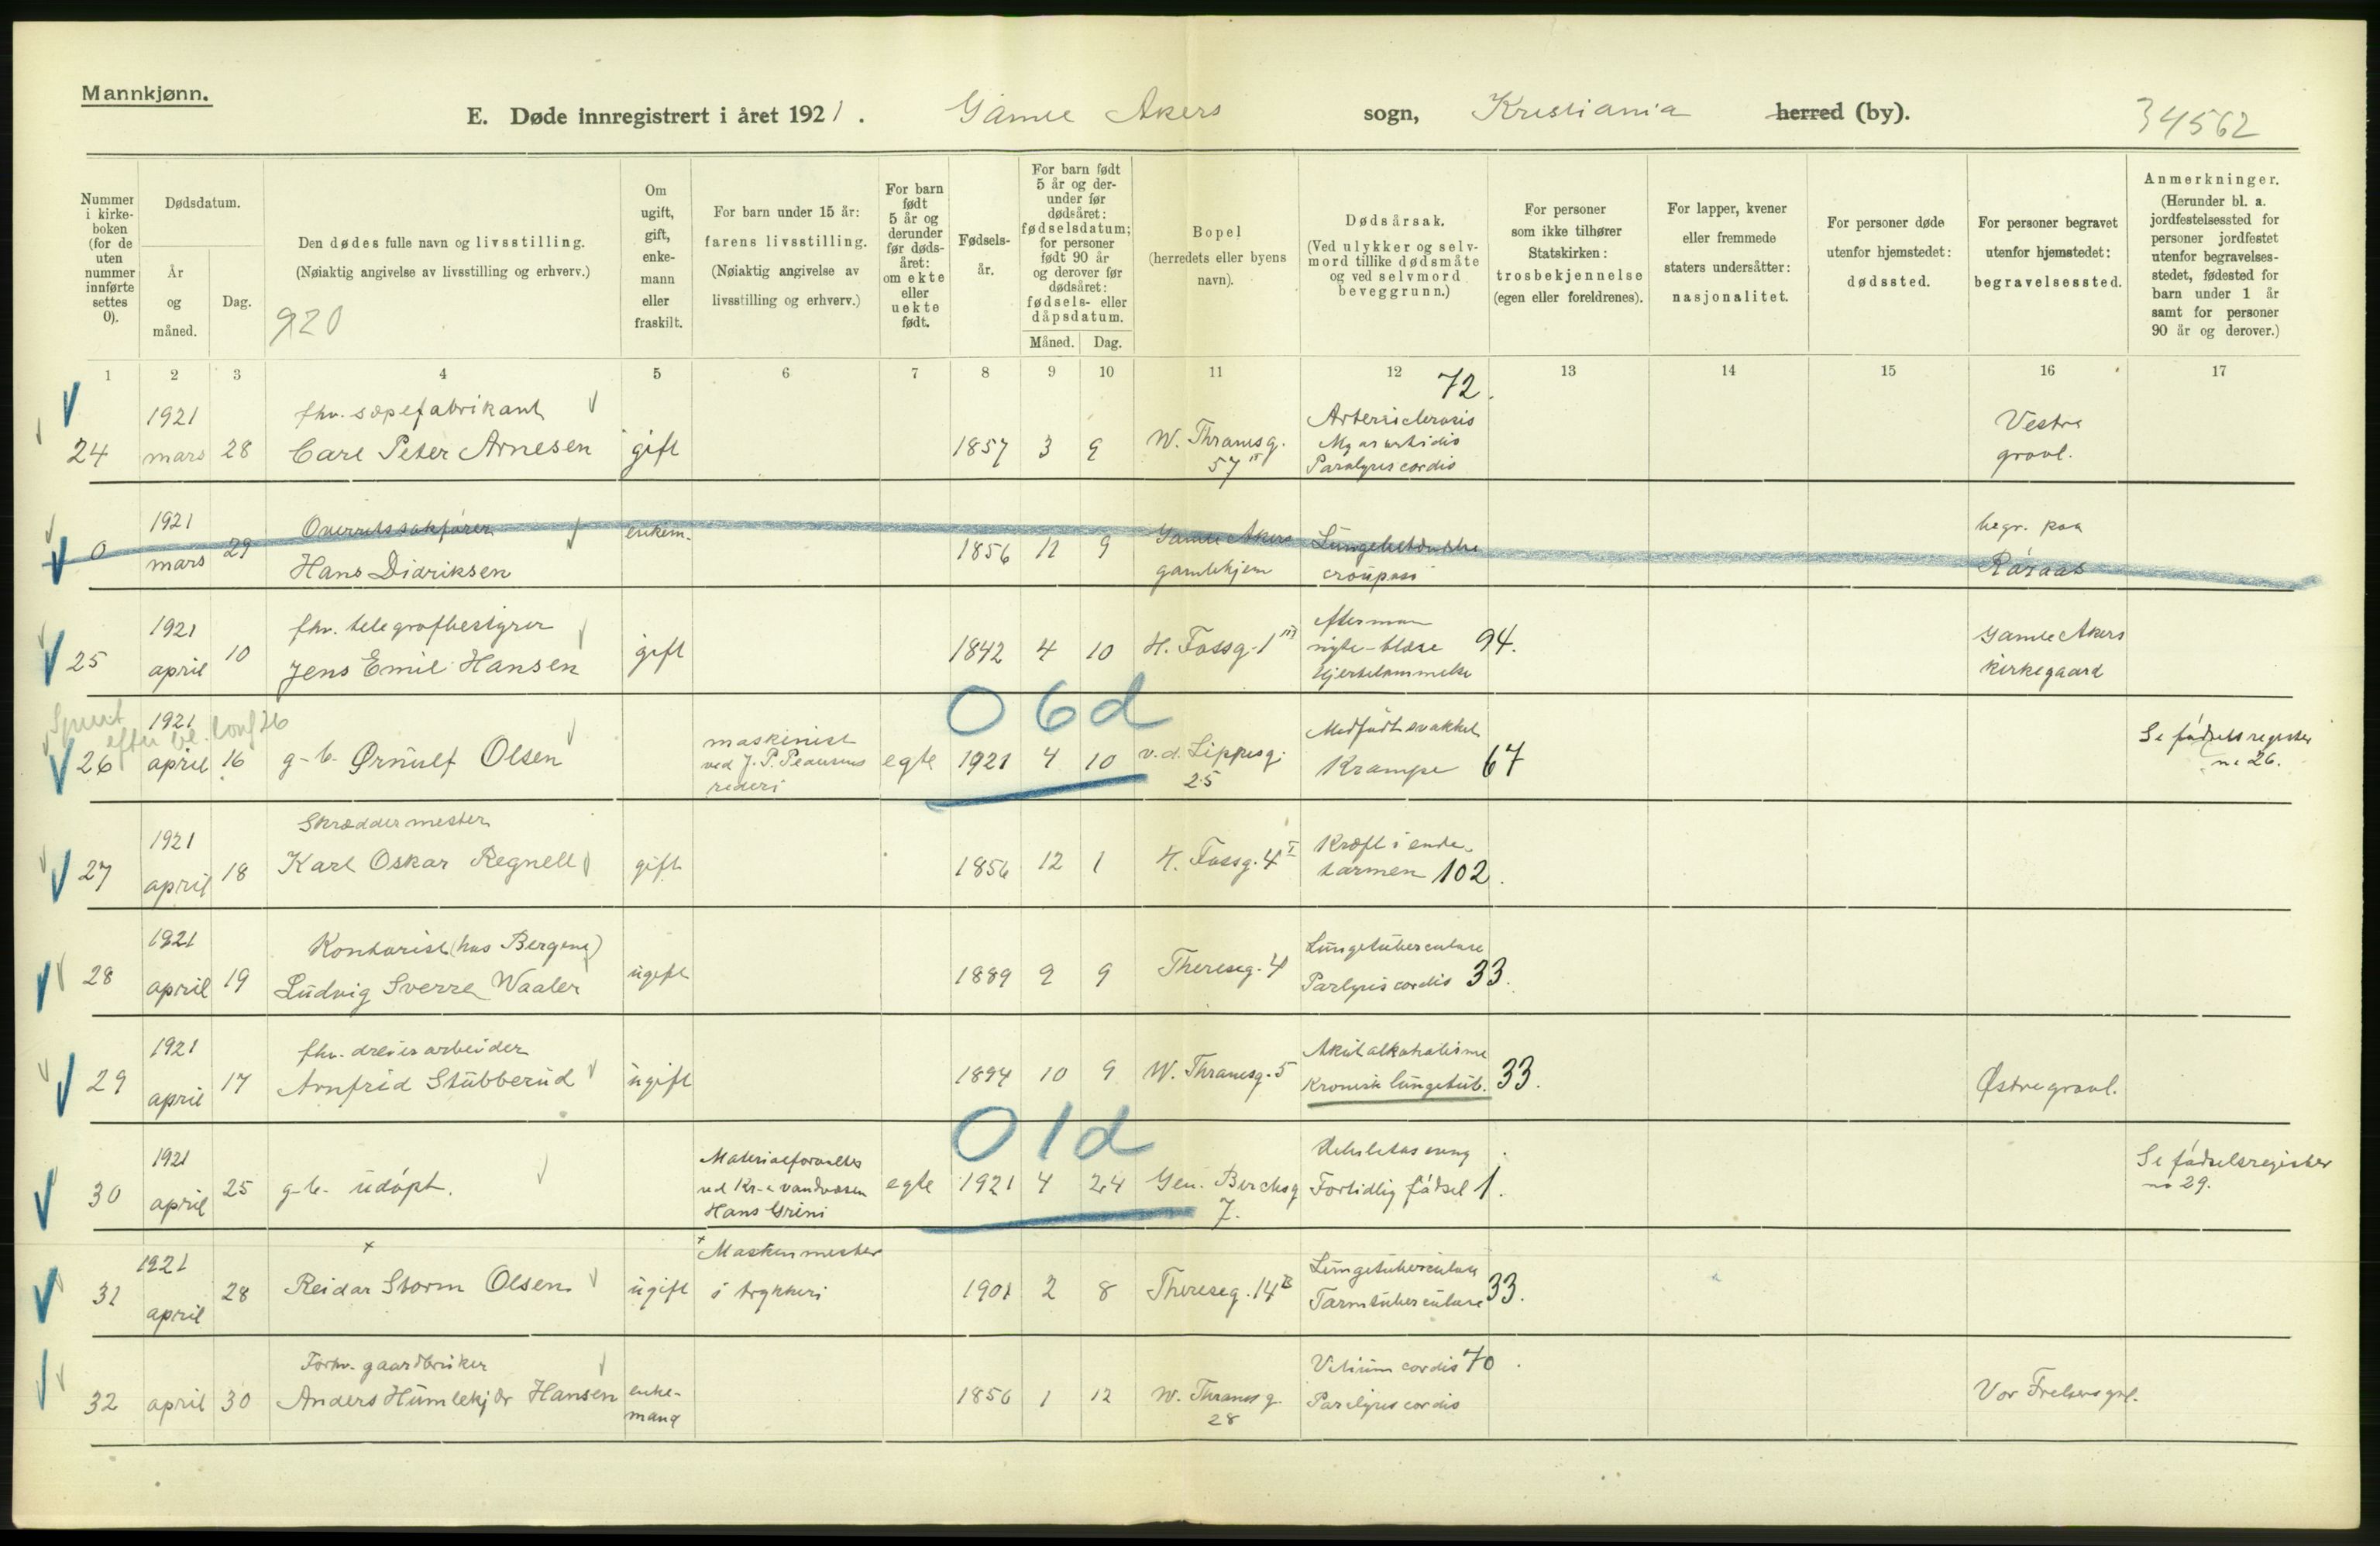 Mannkjønn.
E. Døde innregistrert i året 1921. Gamle Akers sogn, Kristiania herred (by). 34562
Nummer i kirke-boken (for de uten nummer innførte settes 0).
Dødsdatum.
År og måned.
Dag.
Den dødes fulle navn og livsstilling.
(Nøiaktig angivelse av livsstilling og erhverv.)
920
Om ugift, gift, enke-mann eller fraskilt.
For barn under 15 år: farens livsstilling. (Nøiaktig angivelse av livsstilling og erhverv.)
For barn født 5 år og derunder før døds-året: om ekte eller uekte født.
Fødsels-år.
For barn født 5 år og der-under før dødsåret: fødselsdatum; for personer født 90 år og derover før dødsåret: fødsels- eller dåpsdatum.
Måned. Dag.
Bopel (herredets eller byens navn).
Dødsårsak. (Ved ulykker og selv-mord tillike dødsmåte og ved selvmord beveggrunn.)
For personer som ikke tilhører Statskirken: trosbekjennelse (egen eller foreldrenes).
For lapper, kvener eller fremmede staters undersåtter: nasjonalitet.
For personer døde utenfor hjemstedet: dødssted.
For personer begravet utenfor hjemstedet: begravelsessted.
Anmerkninger. (Herunder bl. a. jordfestelsessted for personer jordfestet utenfor begravelses-stedet, fødested for barn under 1 år samt for personer 90 år og derover.)
1 2 3 4 5 6 7 8 9 10 11 12 13 14 15 16 17
72.
1921 fhv. sæpefabrikant Vestre
24 mars 28 Carl Peter Arnesen gift 1857 3 9 W. Thranesg. 57 Paralysis cordis gravl.
1921 Overretssakfører enkem. Gamle Akers begr. paa
0 mars 29 Hans Didriksen 1856 11 9 gamlehjem Lungebetændelse croupøs Røraas
1921 fhv. telegrafbestyrer
25 april 10 Jens Emil Hansen gift 1842 4 10 H. Fossg. 1 nyre-blære 94. Hjertelammelse Gamle Akers kirkegaard
06d
1921 maskinist Medfødt svakhet Se fødselsregister
26 april 16 g-b. Ørnulf Olsen ved J. P. rederi egte 1921 4 10 v.d. Lippesg. 25 Krampe 67 no 26.
1921 Skræddermester
27 april 18 Karl Oskar Regnell gift 1856 12 1 H. Fossg. 4 I Kræft i ende-tarmen 102.
1921 Kontorist (hos Bergene)
28 april 19 Ludvig Sverre Waaler ugift 1889 9 9 Theresesg. 4 Lungetuberculose Parlysis cordis 33.
1921 fhv. dreierarbeider
29 april 17 Arnfrid Stubberud ugift 1894 10 9 W. Thranesg. 5 Akut alkoholisme Kronisk lungetub. 33. Østre gravl.
01d
1921 Materialforvalter Se fødselsregister
30 april 25 g-b. udøpt. ved Kr-a vandvæsen Hans Grini egte 1921 4 24 Gen. Birchsg 7. Fortidlig fødsel 1. no 29.
1921 x x Maskinmester
31 april 28 Reidar Storm Olsen ugift i trykkeri 1901 2 8 Theresesg. 14 B Lungetuberculose Tarmtuberculose 33.
Forhv. gaardbruker
32 april 30 Anders Humlekjær Hansen enke-mand 1850 1 12 W. Thranesg. 28 Vitium cordis 70. Paralysis cordis Vor Frelsers gvl.